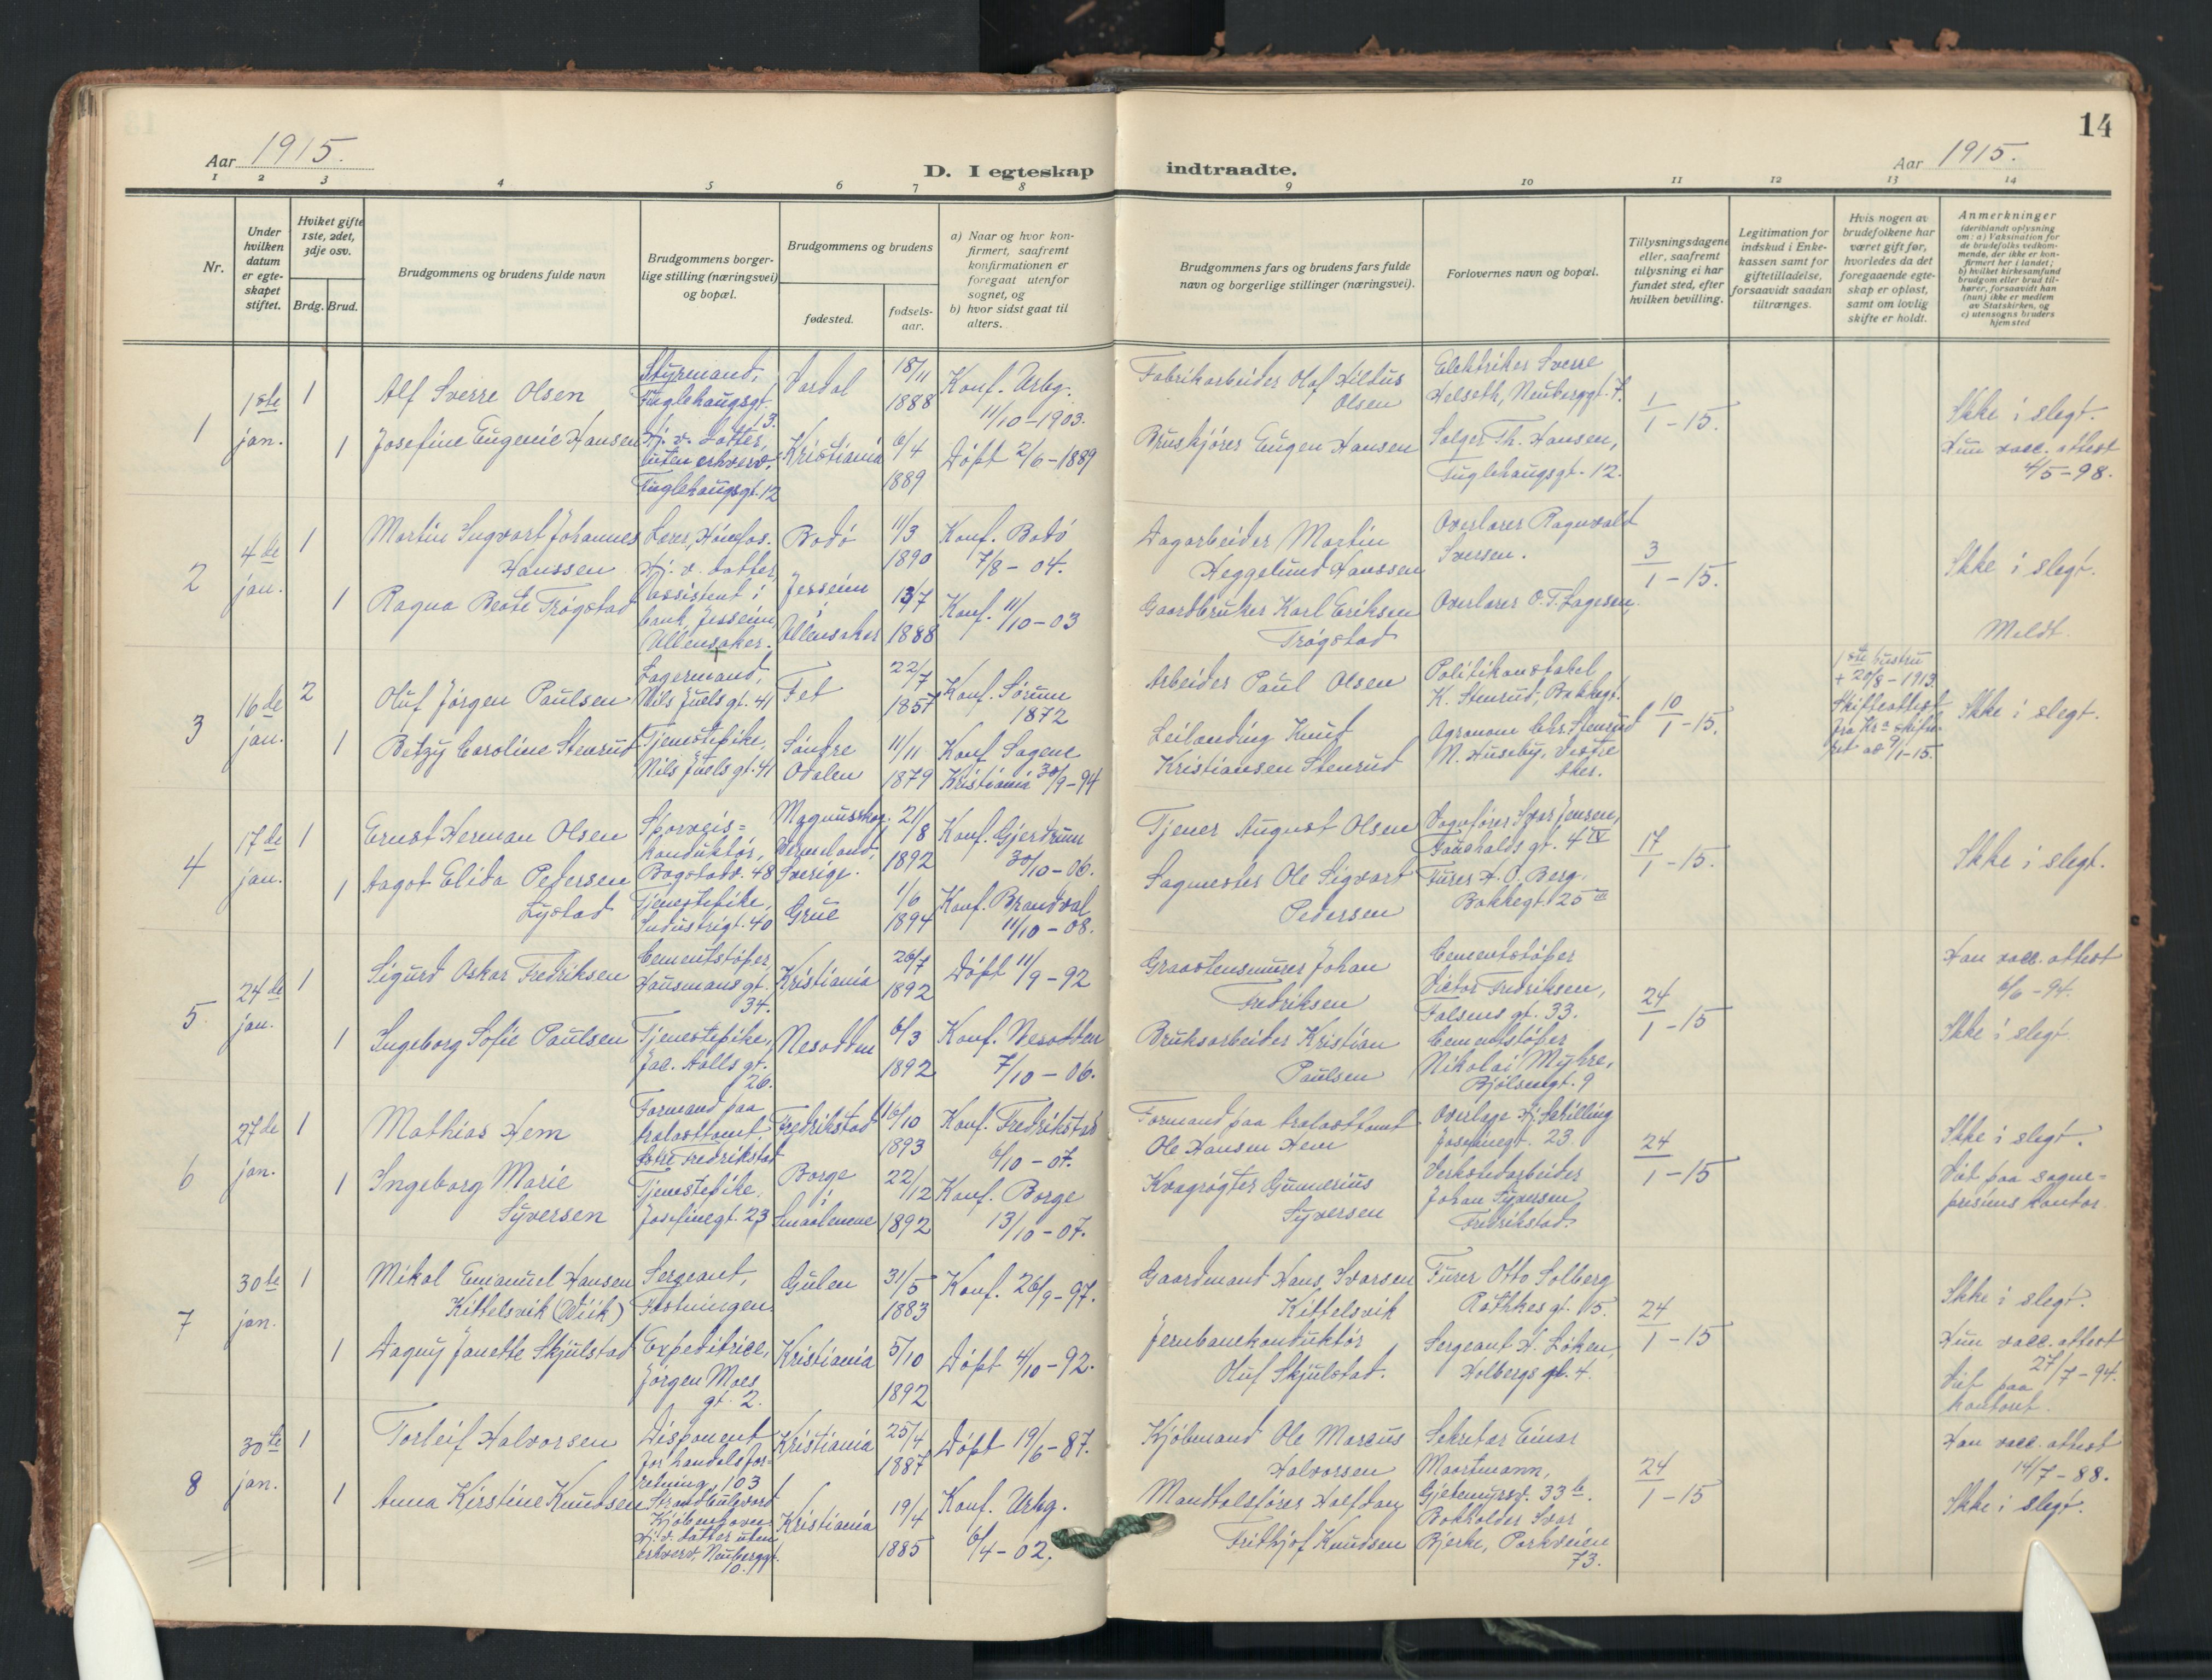 14
Aar 1915.
D. I egteskap indtraadte.
Aar 1915.
1 2 3 4 5 6 7 8 9 10 11 12 13 14
Nr.
Under hvilken datum er egteskapet stiftet.
Hviket gifte 1ste, 2det, 3dje osv.
Brdg. Brud.
Brudgommens og brudens fulde navn
Brudgommens borgerlige stilling (næringsvei) og bopæl.
Brudgommens og brudens
fødested.
fødselsaar.
a) Naar og hvor konfirmert, saafremt konfirmationen er foregaat utenfor sognet, og
b) hvor sidst gaat til alters.
Brudgommens fars og brudens fars fulde navn og borgerlige stillinger (næringsvei).
Forlovernes navn og bopæl.
Tillysningsdagene eller, saafremt tillysning ei har fundet sted, efter hvilken bevilling.
Legitimation for indskud i Enkekassen samt for giftetilladelse, forsaavidt saadan tiltrænges.
Hvis nogen av brudefolkene har været gift før, hvorledes da det foregaaende egteskap er opløst, samt om lovlig skifte er holdt.
Anmerkninger (deriblandt oplysning om: a) Vaksination for de brudefolks vedkommende, der ikke er konfirmert her i landet; b) hvilket kirkesamfund brudgom eller brud tilhører, forsaavidt han (hun) ikke er medlem av Statskirken, og c) utensogns bruders hjemsted
1
1ste jan.
1
Alf Sverre Olsen
Styrmand, Fuglehaugsgt. 13.
Vardal
18/11 1888
Konf. Urbg. 11/10-1903.
Fabrikarbeider Olaf Hildus Olsen
Elektriker Sverre Helseth, Neuberggt. 7.
1/1-15.
Ikke i slegt.
1
Josefine Eugenie Hansen
Hj. v. datter, uten erhverv. Fuglehaugsgt. 12
Kristiania
6/4 1889
Døpt 2/6-1889
Bruskjører Eugen Hansen
Selger Th. Hansen, Fuglehaugsgt. 12.
Hun vacc. attest 4/5-98.
2
4de jan.
1
Martin Ingvart Johannes Hanssen
Lærer, Hønefos.
Bodø
11/3 1890
Konf. Bodø 7/8-04.
Dagarbeider Martin Heggelund Hanssen
Overlærer Ragnvald Iversen.
3/1-15.
Ikke i slegt.
1
Ragna Beate Trøgstad
Hj. v. datter, Assistent i bank, Jessheim, Ullensaker.
Jesseim i Ullensaker
13/7 1888
Konf. 11/10-03
Gaardbruker Karl Eriksen Trøgstad
Overlærer O. T. Lagesen.
Meldt.
3
16de jan.
2
Oluf Jørgen Paulsen
Lagermand, Nils Juels gt. 41
Fet
22/7 1857
Konf. Sørum 1872
Arbeider Paul Olsen
Politikonstabel K. Stenrud, Bakkegt.
10/1-15.
1ste hustru + 20/8-1913. Skifteattest fra Kr.a skifteret av 9/1-15.
Ikke i slegt.
1
Betzy Caroline Stenrud
Tjenestepike, Nils Juels gt. 41
Søndre Odalen
11/11 1879
Konf. Sagene Kristiania 30/9-94
Leilænding Knut Kristiansen Stenrud
Agronom Chr. Stenrud M. Huseby, Vestre Aker.
4
17de jan.
1
Ernst Herman Olsen
Sporveiskonduktør, Bogstadv. 48
Magnusskog. Vermeland, Sverige.
21/8 1892
Konf. Gjerdrum 30/10-06.
Tjener August Olsen
Vognfører Ivar Jensen, Fauchalds gt. 4 IV
17/1-15.
Ikke i slegt.
1
Aagot Elida Pedersen Lystad
Tjenestepike, Industrigt. 40
Grue
1/6 1894
Konf. Brandval 11/10-08.
Sagmester Ole Sigvart Pedersen
Furer H. O. Berg. Bakkegt. 25 III
5
24de jan.
1
Sigurd Oskar Fredriksen
Cementstøper Hausmansgt. 34.
Kristiania
26/7 1892
Døpt 11/9-92
Graastensmurer Johan Fredriksen
Cementstøper Victor Fredriksen, Falsens gt. 33.
24/1-15
Han vacc. attest 6/6-94.
1
Ingeborg Sofie Paulsen
Tjenestepike, Jac. Aalls gt. 26.
Nesodden
6/3 1892
Konf. Nesodden 7/10-06.
Bruksarbeider Kristian Paulsen
Cementstøper Nikolai Myhre, Bjølsengt. 9
Ikke i slegt
6
27de jan.
1
Mathias Hem
Formand paa Fredrikstad
Fredrikstad
16/10 1893
Konf. Fredrikstad 6/10-07.
Formand paa Ole Hansen Hem
Overlæge Hj. Schilling Josefinegt. 23
24/1-15
Ikke i slegt.
1
Ingeborg Marie Syversen
Tjenestepike, Josefinegt. 23
Borge i Smaalenene
22/12 1892
Konf. Borge 13/10-07.
Kvægrøgter Gunnerius Syversen
Verkstedarbeider Johan Syversen, Fredrikstad.
Viet paa sogneprestens kontor.
7
30te jan.
1
Mikal Emanuel Hansen Kittelsvik (Wiik)
Sergeant, Festningen.
Gulen
31/5 1883
Konf. 26/9-97.
Gaardmand Hans Ivarsen Kittelsvik
Furer Otto Solberg Rathkes gt. 15.
24/1-15
Ikke i slegt.
1
Dagny Janette Skjulstad
Expeditrice, Jørgen Moes gt. 2.
Kristiania
5/10 1892
Døpt 4/10-92.
Jernbanekonduktør Oluf Skjulstad.
Sergeant H. Løken, Holbergs gt. 4.
Hun vacc. attest 27/7-94. Viet paa kontoret.
8
30te jan.
1
Torleif Halvorsen
Disponent for handelsforretning, 103 Strandbulevard Kjøbenhavn
Kristiania
25/4 1887
Døpt 19/6-87.
Kjøbmand Ole Marcus Halvorsen
Sekretær Einar Maartmann, Gjetemyrsv. 33 b.
24/1-15
Han vacc. attest 14/7-88.
1
Anna Kirstine Knudsen
Hj. v. datter uten erhverv. Neuberggt. 10.
Kristiania
19/4 1885
Konf. Urbg. 6/4-02,
Mandtalsfører Halfdan Frithjof Knudsen
Bokholder Ivar Bjerke, Parkveien 73.
Ikke i slegt.